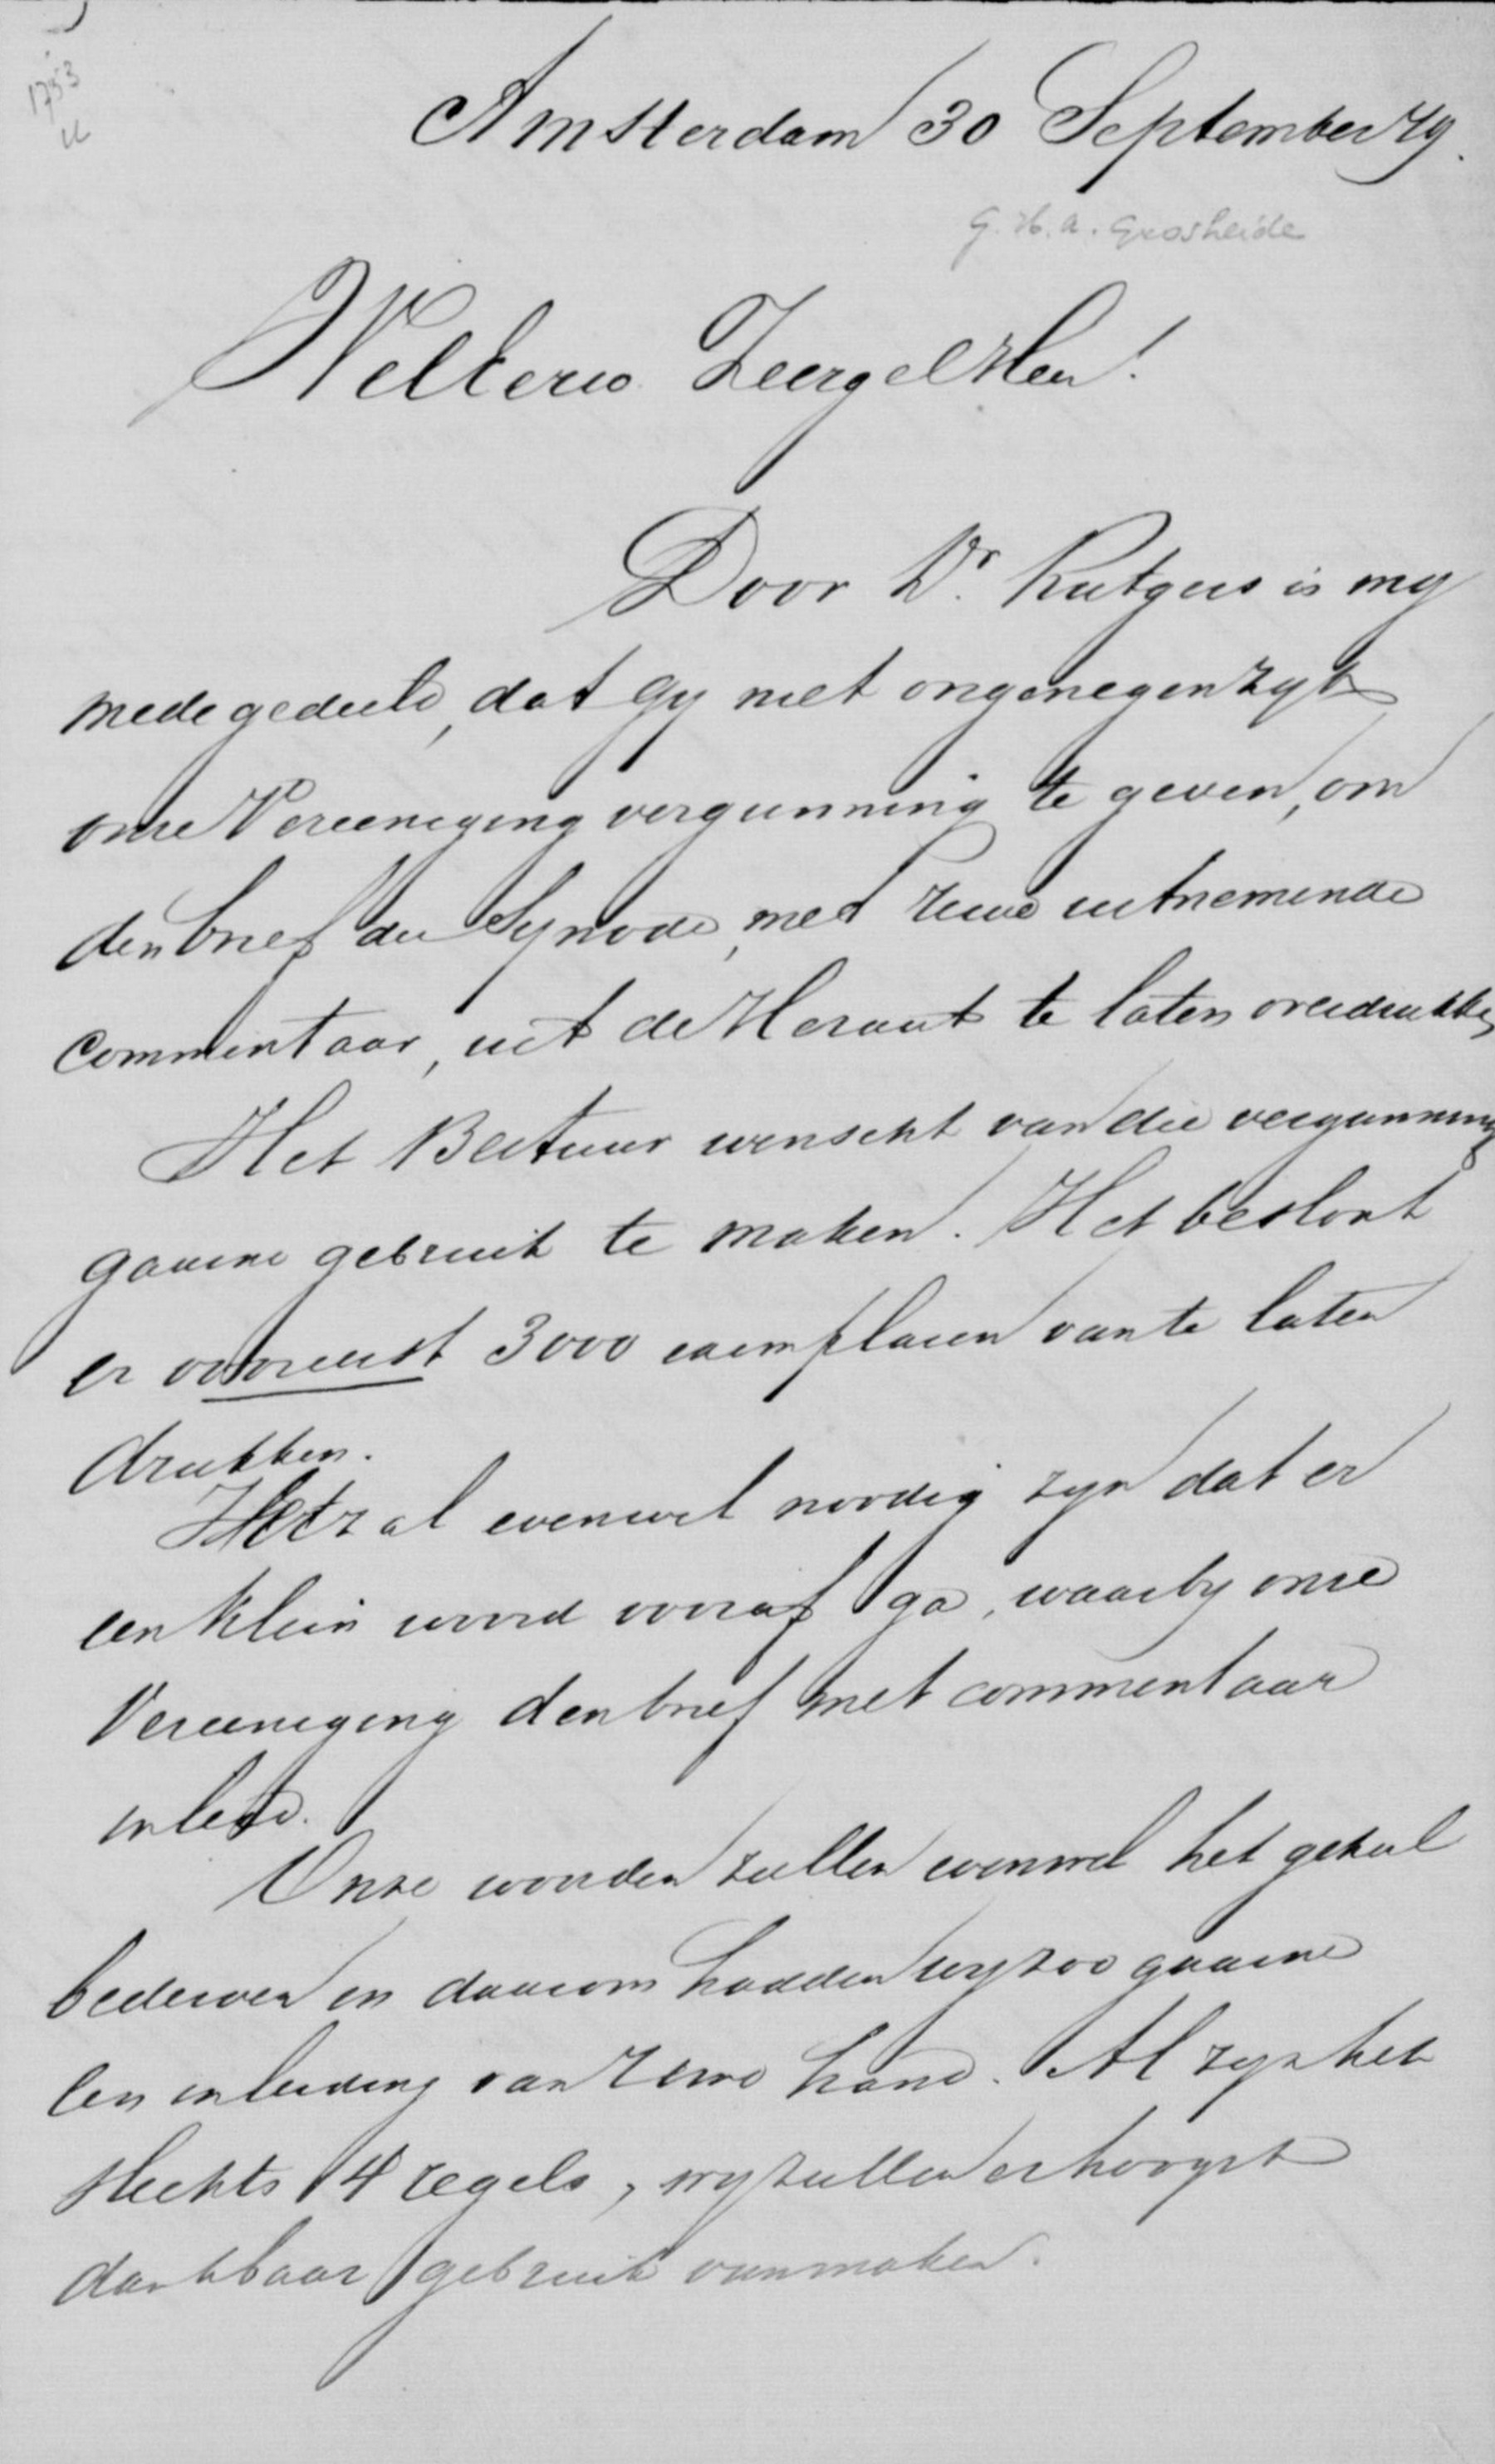 1753
Amsterdam 30 September 79.
G. H. A. Grosheide
WelEerw. Zeergel Heer!
Door Dr. Rutgers is my
medegedeeld, dat Gy niet ongenegen zyt
onze Vereeniging vergunning te geven, om
den brief der Synode, met Uwe uitnemende
commentaar, uit de Heraut te laten overdrukken
Het Bestuur wenscht van die vergunning
gaarne gebruik te maken. Het besloot
er vooreerst 3000 exemplaren van te laten
drukken.
Het zal evenwel noodig zyn dat er
een klein woord vooraf ga, waarby onze
Vereeniging den brief met commentaar
inleid.
Onze woorden zullen evenwel het geheel
bederven en daarom hadden wy zoo gaarne
een inleiding van Uwe hand. Al zyn het
slechts 4 regels, wy zullen er hoogst
dankbaar gebruik van maken.